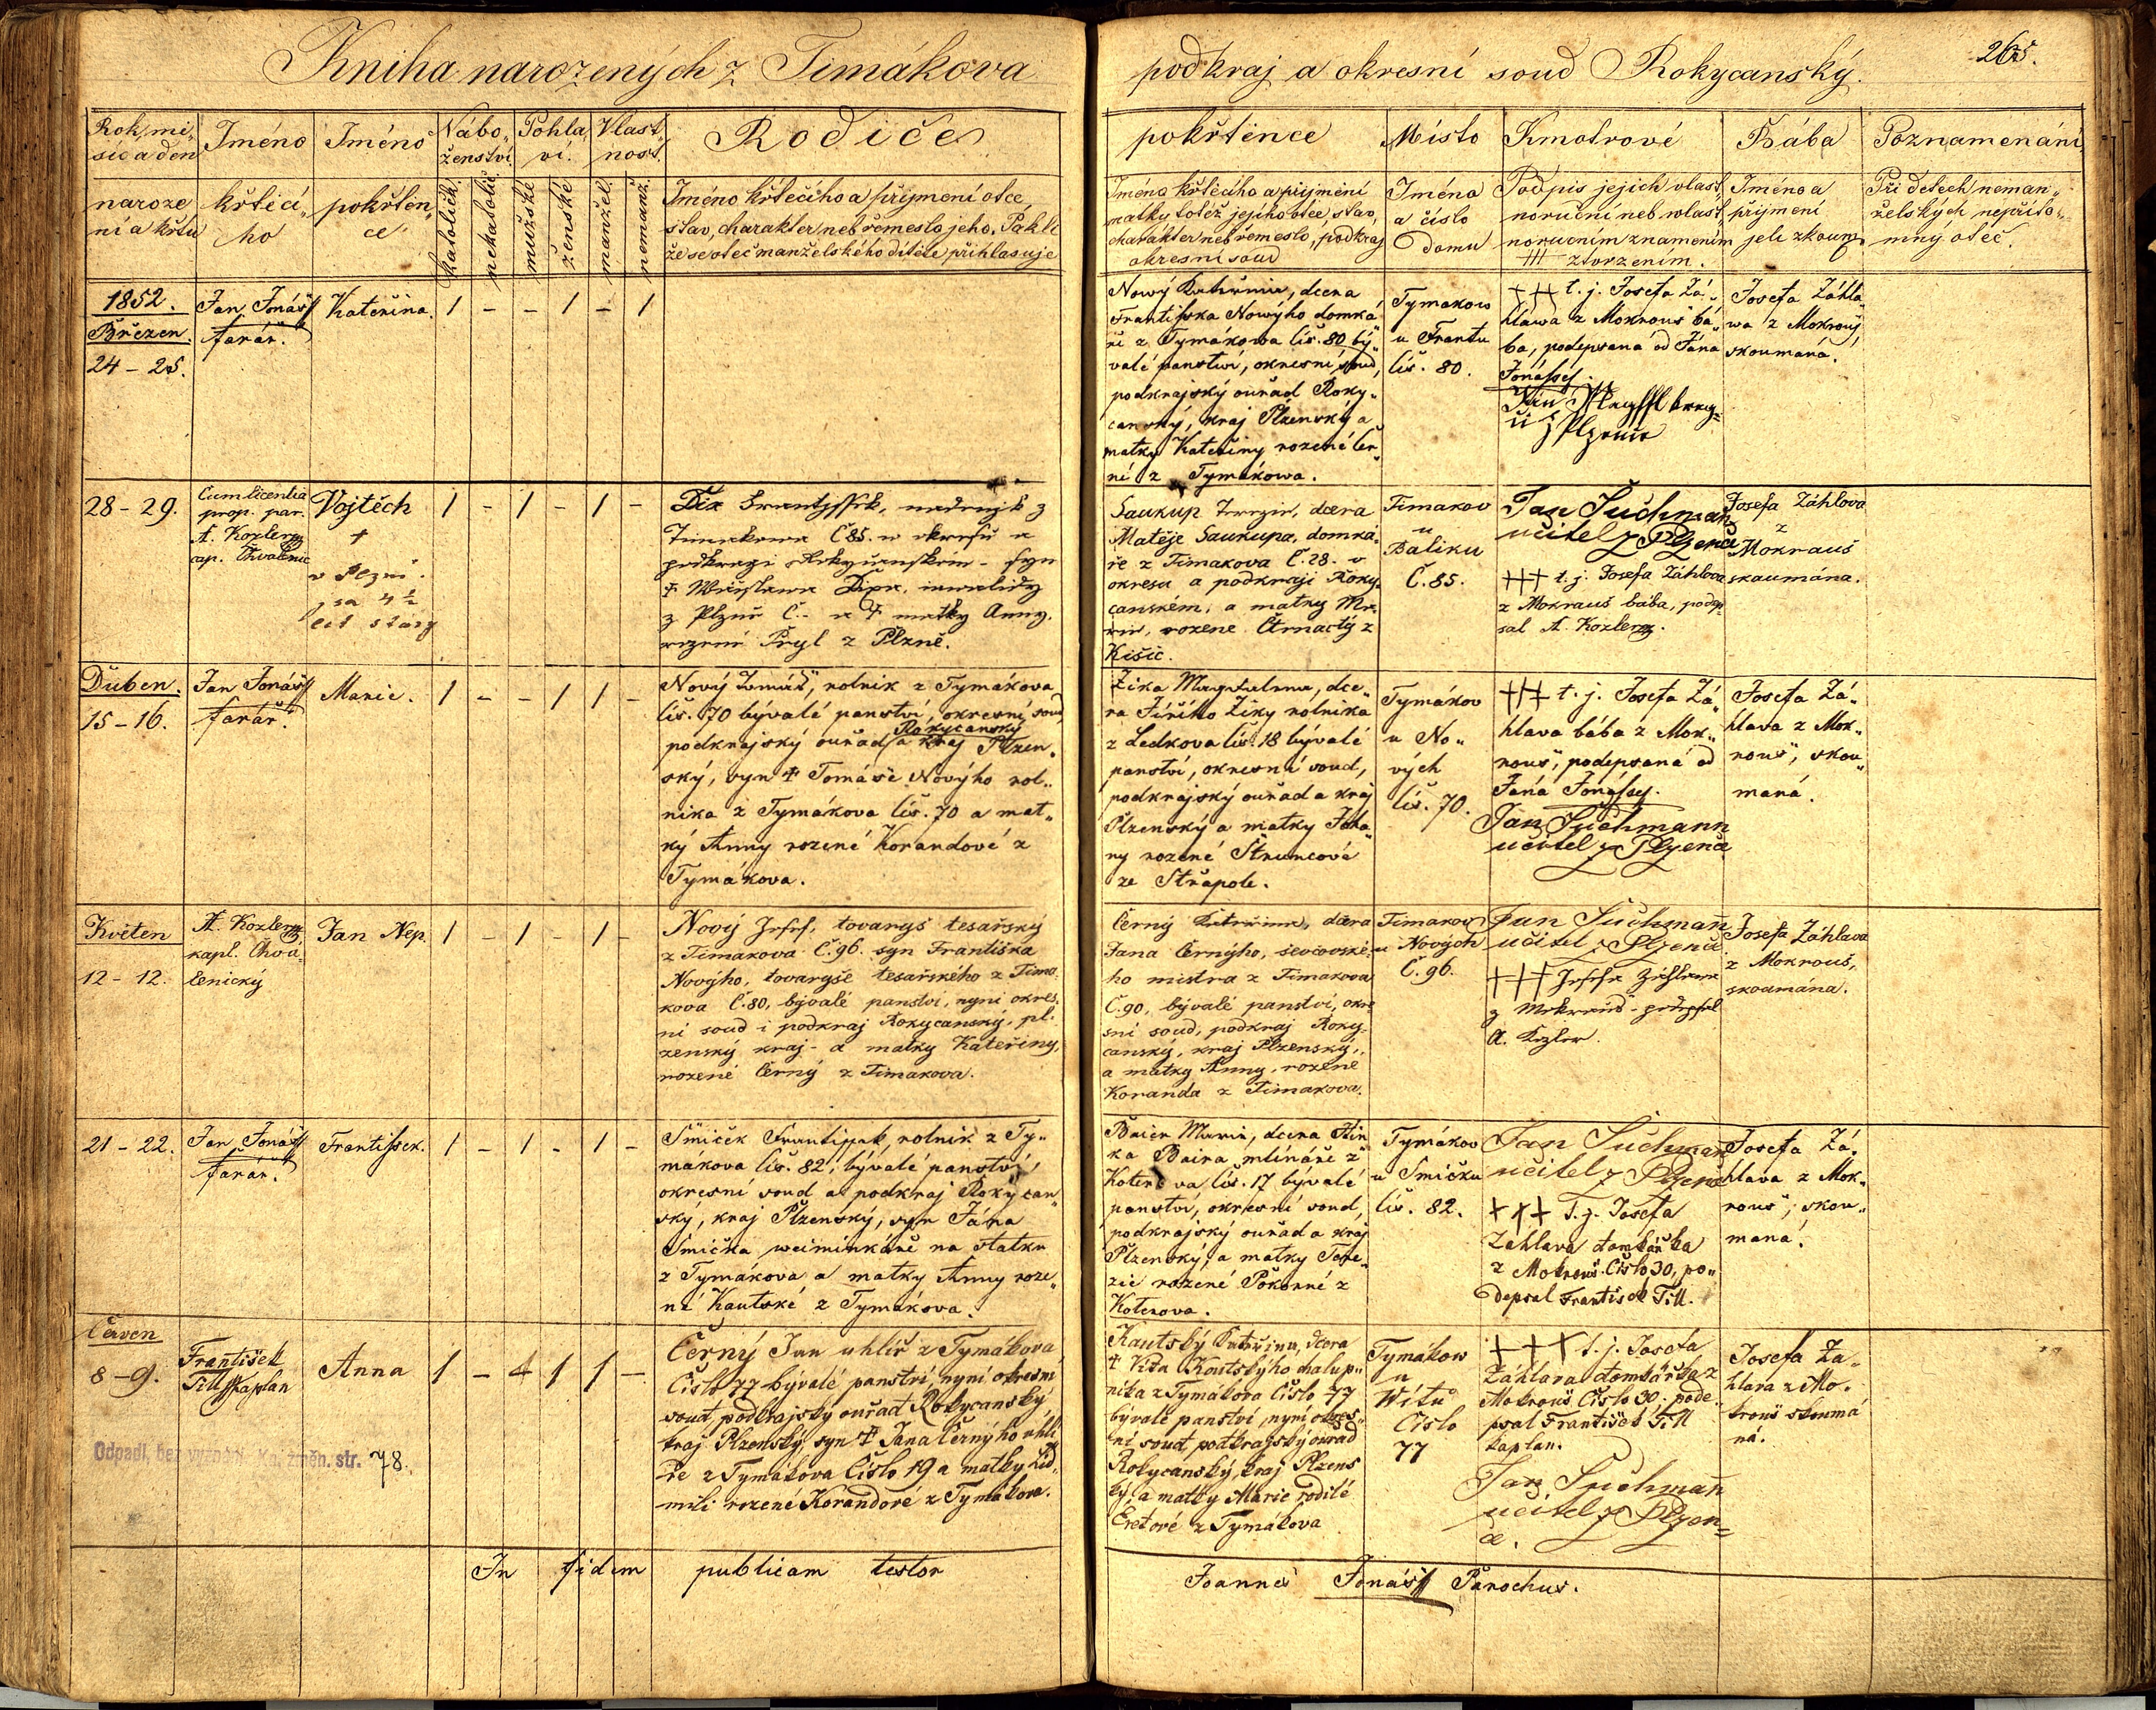 Kniha narozených z Timákova
podkraj a okresní soud Rokycanský.
265.
Rok, mě„
síc a den
naroze
ní a křtu
Jméno
křtící„
ho
Jméno
pokřtěn„
ce
Nábo„
ženství.
katolické.
nekatolic.
Pohla„
ví.
mužské
ženské
Vlast„
nost.
manžel.
nemanž.
Rodiče
Jméno křtěcího a příjmení otce,
stav, charakter neb řemeslo jeho. Pakli
že se otec manželského dítěte přihlasuje
pokřtěnce
Jméno křtěcího a příjmení
matky totéž jejího otce stav,
charakter neb řemeslo, podkraj
okresní soud
Místo
Jména
a číslo
domu
Kmotrové
Podpis jejich vlast„
noruční neb vlast„
noručním znamením
+++ ztvrzením.
Bába
Jméno a
příjmení
jeli zkoum.
Poznamenání.
Při dětech neman„
želských nepříto„
mný otec.
1852.
Březen.
24 - 25.
Jan Jonášš
farář.
Kateřina.
1 - - 1 - 1
Nový Kateřina, dcera
Frantisska Nowýho domká„
ře z Tymákowa čís. 80 bý„
valé panstwí, okresní soud,
podkrajský ouřad Roky„
canský, kraj Plzenský a
matky Kateřiny rozené Čer„
né z Tymákowa.
Tymakow
u Frantu
čís. 80.
+++ t. j. Josefa Zá„
hlawa z Mokrouš bá„
ba, podepsaná od Jána
Jonássej.
z Plzence
Josefa Záhla„
wa z Mokrouš
skoumaná.
28 - 29.
Cum licentia
prop. par.
A. Kozler
cap. Chválenic
Vojtěch
+
v Plzni.
sa 4 1/2
let starý
1 - 1 - 1 -
Dix Frantissek, nádeník z
Timakowa Č 85. w okresu a
podkraji Rokycanském - syn
z Plzně Č.- a + matky Anny,
rozené Pryl z Plzně.
Saukup Terezie, dcera
Matěje Saukupa, domká„
ře z Timakova Č. 28. v
okresu a podkraji Roky„
canském, a matky Ma„
rie, rozene Čtrnactý z
Kišic.
Timakov
u
Baliku
Č. 85.
Jan Suchmañ
učitel z Plzenče
+++ t. j. Josefa Záhlova
z Mokrauš bába, podep„
sal A. Kozler.
Josefa Záhlova
z
Mokrauš
skaumána.
Duben.
15 - 16.
Jan Jonášš
farář.
Marie.
1 - - 1 1 -
Nový Tomáš, rolník z Tymákova
čís. 70 bývalé panství, okresní soud
Rokycanský
podkrajský ouřad a kraj Plzen„
ský, syn + Tomáše Nového rol„
níka z Tymákova čís. 70 a mat„
ky Anny rozené Korandové z
Tymákova.
Žika Magdalena, dce„
ra Jiřího Žiky rolníka
z Ledkova čís. 18 bývalé
panství, okresní soud,
podkrajský ouřad a kraj
Plzenský a matky Joha„
ny rozené Štruncové
ze Střapole.
Tymákov
u No„
vých
čís. 70.
+++ t. j. Josefa Zá„
hlava bába z Mok„
rouš, podepsaná od
Jáná Jonássej.
Jan Suchmann
učitel z Plzenče
Josefa Zá„
hlava z Mok„
rouš, skou„
maná.
Květen
12 - 12.
A. Kozler
kapl. Chvá„
lenický
Jan Nep.
1 - 1 - 1 -
Nový Josef, tovaryš tesařský
z Timakova Č. 96. syn Františka
Nového, tovaryše tesařského z Tima„
kova Č. 80, bývalé panství, nyní okres„
ní soud i podkraj Rokycanský, pl„
zenský kraj - a matky Kateřiny,
rozené Černý z Timakova.
Černý Kateřina, dcera
Jana Černýho, ševcovské„
ho mistra z Timakova
Č. 90, bývalé panství, okre„
sní soud, podkraj Roky„
canský, kraj Plzenský,
a matky Anny, rozene
Koranda z Timakova.
Timakov
u Nových
Č. 96.
Jan Suchmañ
učitel z Plzenče
+++ Josefa Záhlawa
z Mokrauš - podepsal
A. Kozler.
Josefa Záhlava
z Mokrouš,
skoumána.
21 - 22.
Jan Jonášš
farář.
Frantissek.
1 - 1 - 1 -
Smiček Frantissek, rolník z Ty„
mákova čís. 82, bývalé panství,
okresní soud a podkraj Rokycan„
ský, kraj Plzenský, syn Jána
Smička weiminkáře na statku
z Tymákova a matky Anny roze„
né Kautské z Tymákova.
Baier Marie, dcera Hin„
ka Baira mlínáře z
Koterova čís. 17 bývalé
panství, okresní soud,
podkrajský ouřad a kraj
Plzenský, a matky Tere„
zie rozené Pokorné z
Koterova.
Tymákov
u Smičku
čís. 82.
Jan Suchmañ
učitel z Plzenče
+++ t. j. Josefa
Záhlava domkářka
z Mokrouš Číslo 30, po„
depsal František Till.
Josefa Zá„
hlava z Mok„
rouš, skou„
maná.
Červen
8 - 9.
František
Till Kaplan
Anna
1 - 4 1 1 -
Černý Jan uhlíř z Tymákova
Číslo 77 bývalé panství, nyní okresní
soud, podkrajský ouřad Rokycanský,
kraj Plzenský, syn + Jana Černýho uhlí„
ře z Tymákova Číslo 19 a matky Lid„
mili rozené Korandové z Tymákova.
Kautský Kateřina, dcera
+ Víta Kautskýho chalup„
níka z Tymákova Číslo 77
bývalé panství, nyní okres„
ní soud podkrajský ouřad
Rokycanský, kraj Plzens
ký, a matky Marie rodilé
Eretové z Tymákova
Tymákow
u
Wítů
Číslo
77
+++ t. j. Josefa
Záhlava domkářka z
Mokrouš Číslo 30; pode„
psal František Till
kaplan.
Jan Suchmañ
učitel z Plzen=
če.
Josefa Za„
hlava z Mo„
krouš skoumá
ná.
Odpadl, bez vyznání. Kn. změn. str. 78.
In fidem publicam testor
Joannes Jonášš Parochus.